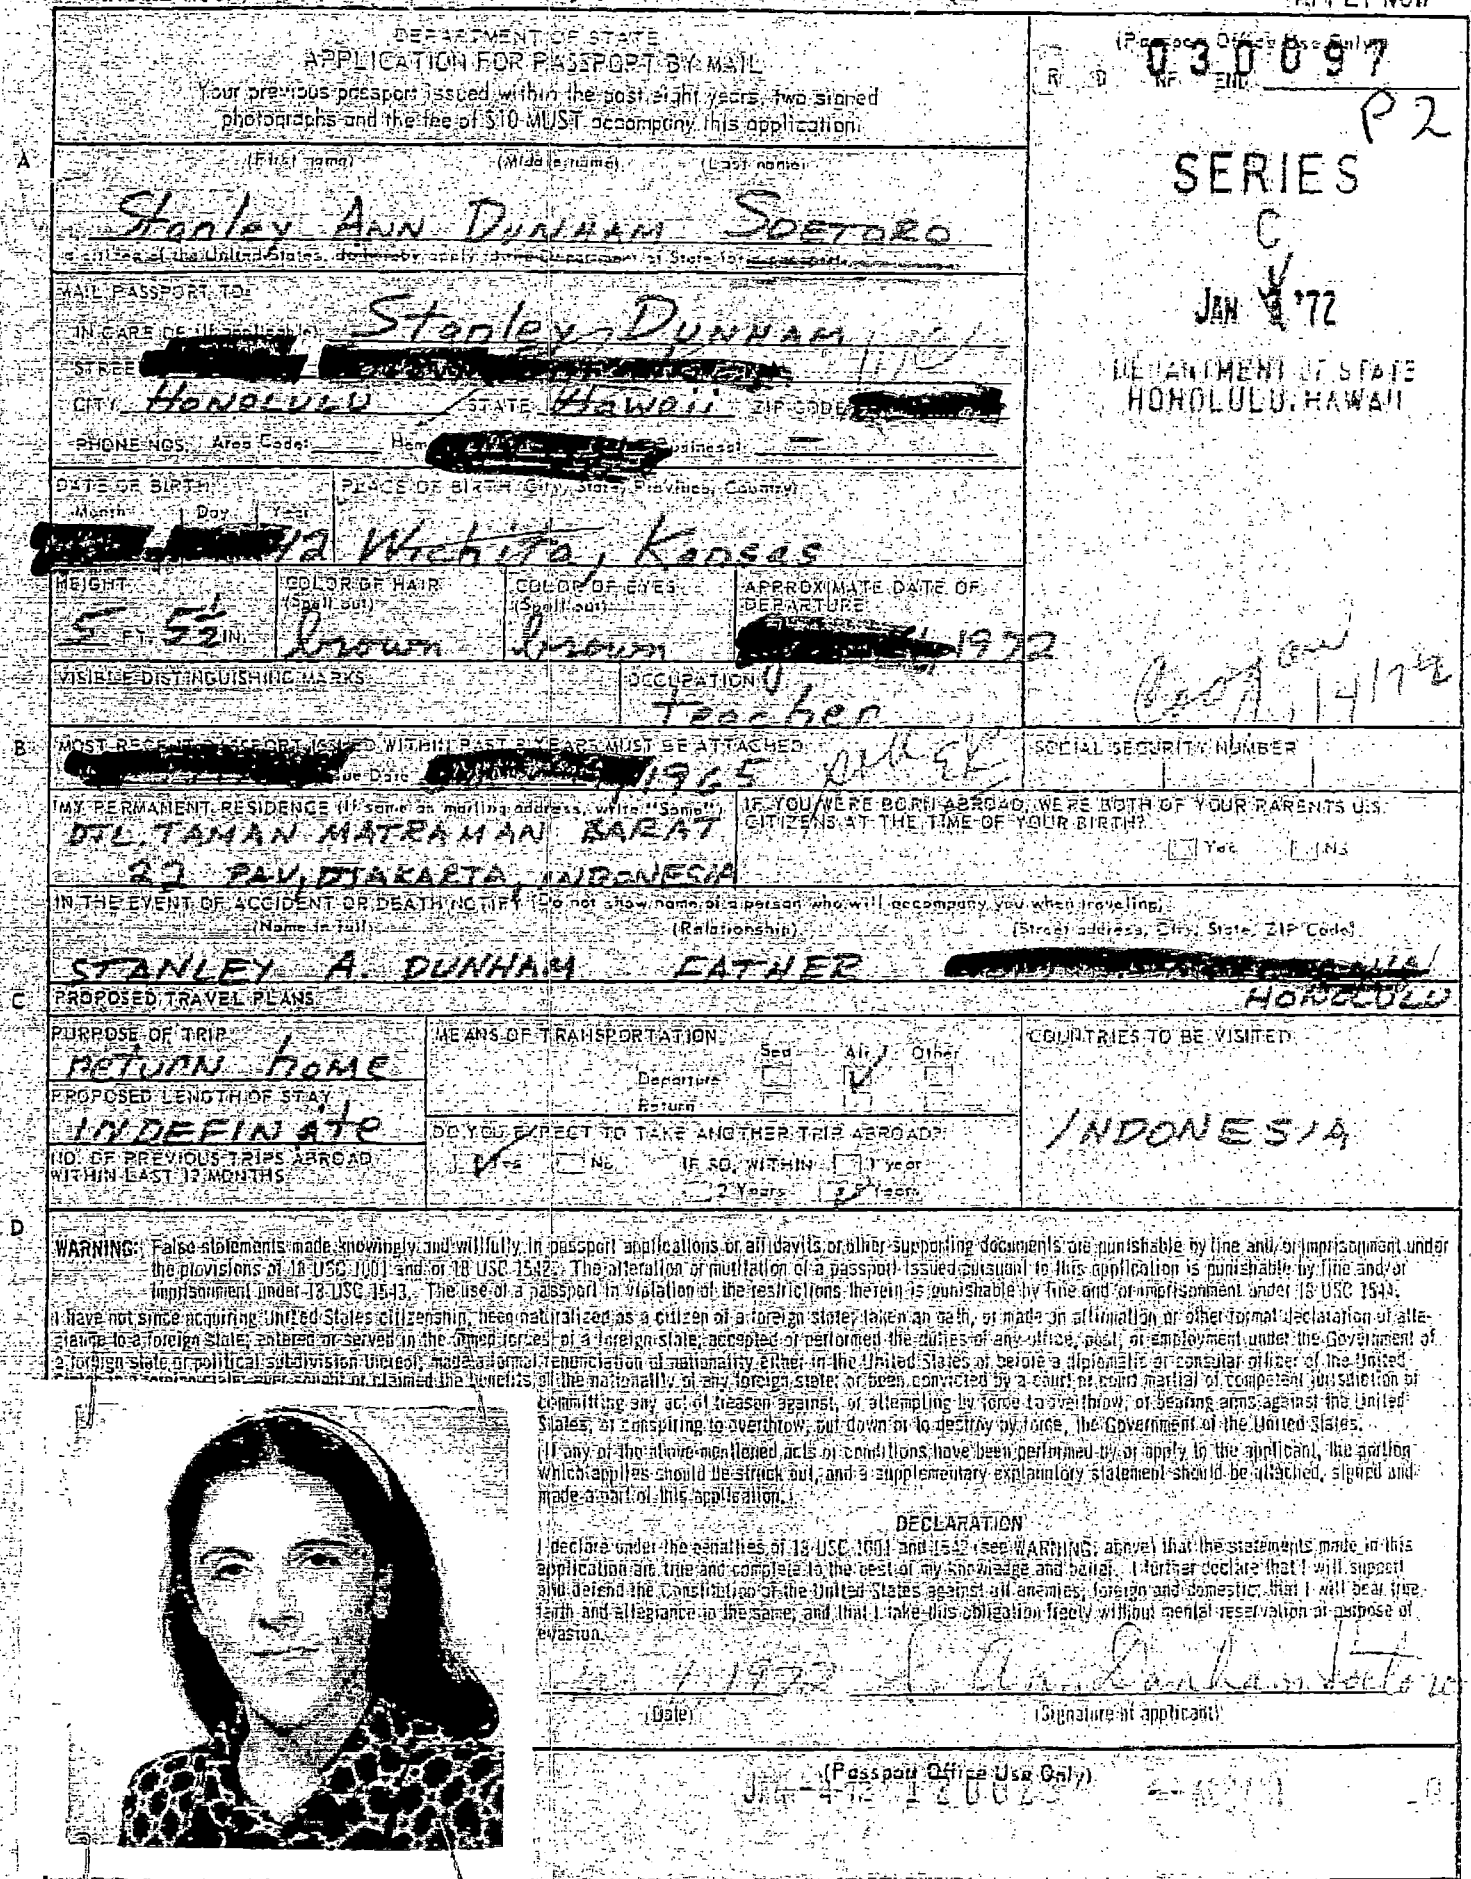 DEPARTMENT OF STATE
APPLICATION FOR PASSPORT BY MAIL
Your previous passport issued within the past eight years, two signed
photographs and the fee of $10 MUST accompany this application.
(Passport Office Use Only)
030097
R D RF END.
P2
SERIES
C
JAN '72
DEPARTMENT OF STATE
HONOLULU, HAWAII
A
(First name) (Middle name) (Last name)
Stanley ANN DUNHAM SOETORO
a citizen of the United States, do hereby apply to the Department of State for a passport.
MAIL PASSPORT TO:
IN CARE OF (If applicable) Stanley DUNHAM
STREE
CITY HONOLULU STATE Hawaii ZIP CODE
PHONE NOS. Area Code: Hom Business: —
DATE OF BIRTH PLACE OF BIRTH (City, State, Province, Country)
Month Day Year
42 Wichita, Kansas
HEIGHT COLOR OF HAIR COLOR OF EYES APPROXIMATE DATE OF
(Spell out) (Spell out) DEPARTURE
5 FT. 5½ IN. brown brown 1972
VISIBLE DISTINGUISHING MARKS OCCUPATION
teacher
B
MOST RECENT PASSPORT ISSUED WITHIN PAST 8 YEARS MUST BE ATTACHED
SOCIAL SECURITY NUMBER
ue Date 1965
MY PERMANENT RESIDENCE (If same as mailing address, write "Same")
DJL. TAMAN MATRAMAN BARAT
22 PAV, DJAKARTA, INDONESIA
IF YOU WERE BORN ABROAD, WERE BOTH OF YOUR PARENTS U.S.
CITIZENS AT THE TIME OF YOUR BIRTH?
Yes No
IN THE EVENT OF ACCIDENT OR DEATH NOTIFY (Do not show name of a person who will accompany you when traveling)
(Name in full) (Relationship) (Street address, City, State, ZIP Code)
STANLEY A. DUNHAM FATHER
HONOLULU
C
PROPOSED TRAVEL PLANS
PURPOSE OF TRIP
RETURN HOME
PROPOSED LENGTH OF STAY
INDEFINATE
NO. OF PREVIOUS TRIPS ABROAD
WITHIN LAST 12 MONTHS
MEANS OF TRANSPORTATION
Sea Air Other
Departure
Return
DO YOU EXPECT TO TAKE ANOTHER TRIP ABROAD?
Yes No IF SO, WITHIN 1 year
2 Years 5 Years
COUNTRIES TO BE VISITED
INDONESIA
D
WARNING: False statements made knowingly and willfully in passport applications or affidavits or other supporting documents are punishable by fine and/or imprisonment under
the provisions of 18 USC 1001 and/or 18 USC 1542. The alteration or mutilation of a passport issued pursuant to this application is punishable by fine and/or
imprisonment under 18 USC 1543. The use of a passport in violation of the restrictions therein is punishable by fine and/or imprisonment under 18 USC 1544.
I have not since acquiring United States citizenship, been naturalized as a citizen of a foreign state; taken an oath, or made an affirmation or other formal declaration of alle-
giance to a foreign state; entered or served in the armed forces of a foreign state; accepted or performed the duties of any office, post, or employment under the Government of
a foreign state or political subdivision thereof; made a formal renunciation of nationality either in the United States or before a diplomatic or consular officer of the United
of the nationality of any foreign state; or been convicted by a court or court martial of competent jurisdiction of
committing any act of treason against, or attempting by force to overthrow, or bearing arms against the United
States, or conspiring to overthrow, put down or to destroy by force, the Government of the United States.
(If any of the above-mentioned acts or conditions have been performed by or apply to the applicant, the portion
which applies should be struck out, and a supplementary explanatory statement should be attached, signed and
made a part of this application.)
DECLARATION
I declare under the penalties of 18 USC 1001 and 1542 (see WARNING; above) that the statements made in this
application are true and complete to the best of my knowledge and belief. I further declare that I will support
and defend the Constitution of the United States against all enemies, foreign and domestic; that I will bear true
faith and allegiance to the same; and that I take this obligation freely without mental reservation or purpose of
evasion.
1972 Ann Dunham Soetoro
(Date) (Signature of applicant)
(Passport Office Use Only)